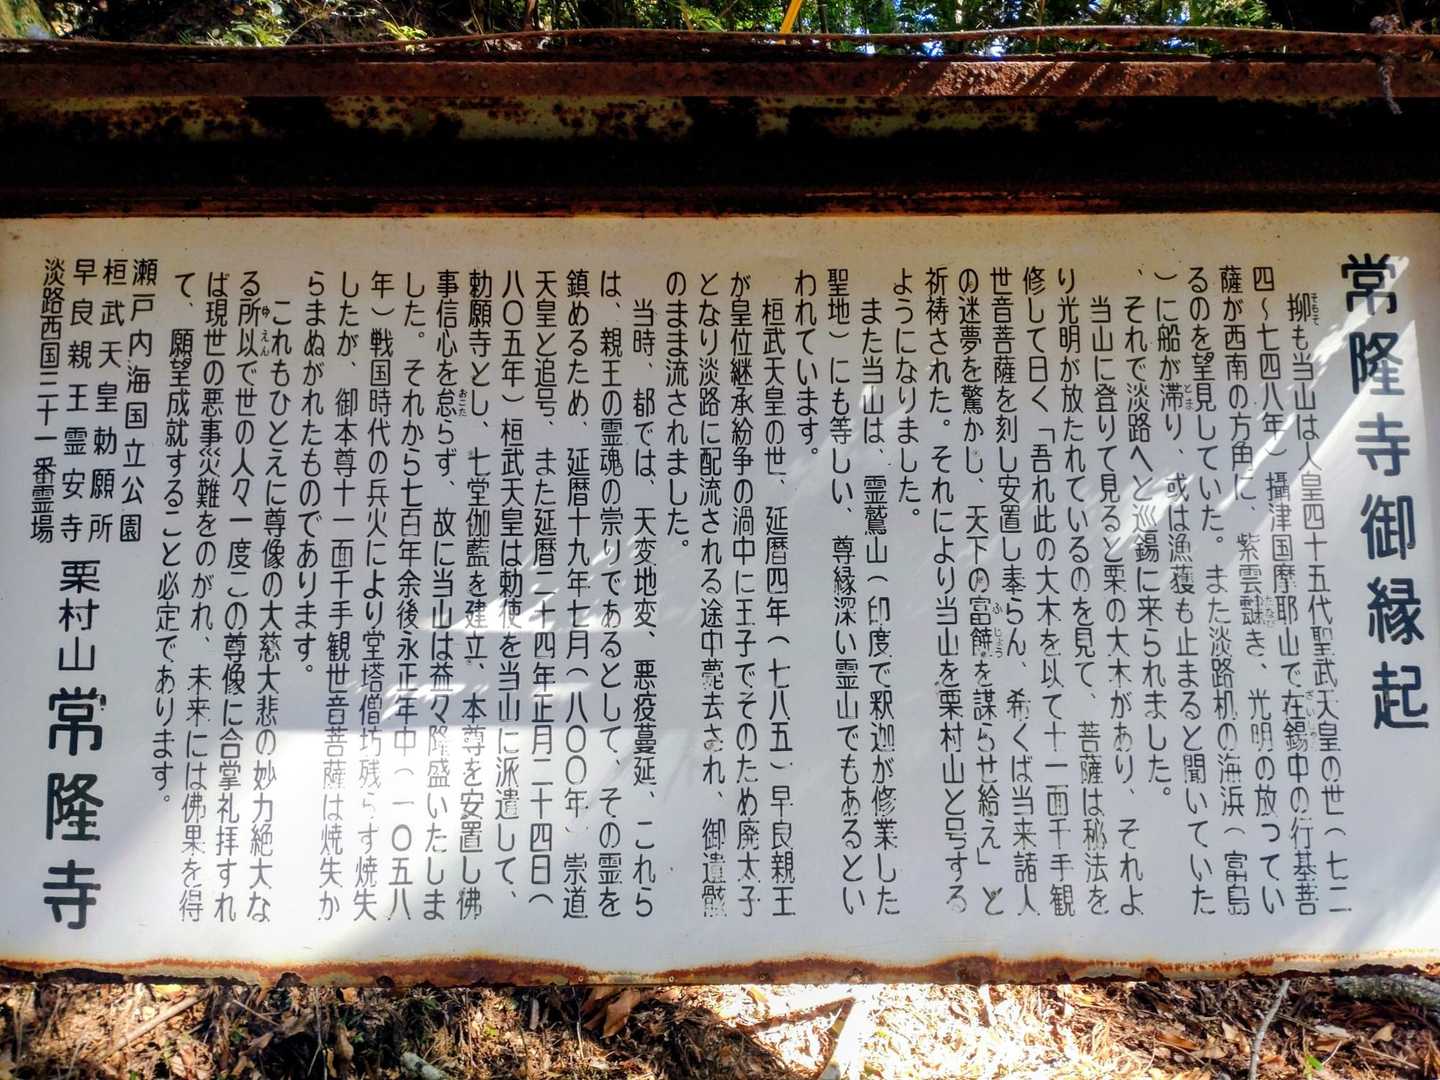 常隆寺御縁起
柳も当山は人皇四十五代聖武天皇の世（七二
四～七四八年）攝津国摩耶山で在錫中の行基菩
薩が西南の方角に、紫雲靆き、光明の放ってい
るのを望見していた。また淡路机の海浜（富島
）に船が滞り、或は漁獲も止まると聞いていた
、それで淡路へと巡錫に来られました。
当山に登りて見ると栗の大木があり、それよ
り光明が放たれているのを見て、菩薩は秘法を
修して曰く「吾れ此の大木を以て十一面千手観
世音菩薩を刻し安置し奉らん、希くば当来諸人
の迷夢を驚かし、天下の富饒を謀らせ給え」と
祈祷された。それにより当山を栗村山と号する
ようになりました。
また当山は、霊鷲山（印度で釈迦が修業した
聖地）にも等しい、尊縁深い霊山でもあるとい
われています。
桓武天皇の世、延暦四年（七八五）早良親王
が皇位継承紛争の渦中に王子でそのため廃太子
となり淡路に配流される途中薨去され、御遺骸
のまま流されました。
当時、都では、天変地変、悪疫蔓延、これら
は、親王の霊魂の崇りであるとして、その霊を
鎮めるため、延暦十九年七月（八〇〇年）崇道
天皇と追号、また延暦二十四年正月二十四日（
八〇五年）桓武天皇は勅使を当山に派遣して、
勅願寺とし、七堂伽藍を建立、本尊を安置し佛
事信心を怠らず、故に当山は益々隆盛いたしま
した。それから七百年余後永正年中（一〇五八
年）戦国時代の兵火により堂塔僧坊残らす焼失
したが、御本尊十一面千手観世音菩薩は焼失か
らまぬがれたものであります。
これもひとえに尊像の大慈大悲の妙力絶大な
る所以で世の人々一度この尊像に合掌礼拝すれ
ば現世の悪事災難をのがれ、未来には佛果を得
て、願望成就すること必定であります。
瀬戸内海国立公園
桓武天皇勅願所
早良親王霊安寺
淡路西国三十一番霊場
栗村山常隆寺